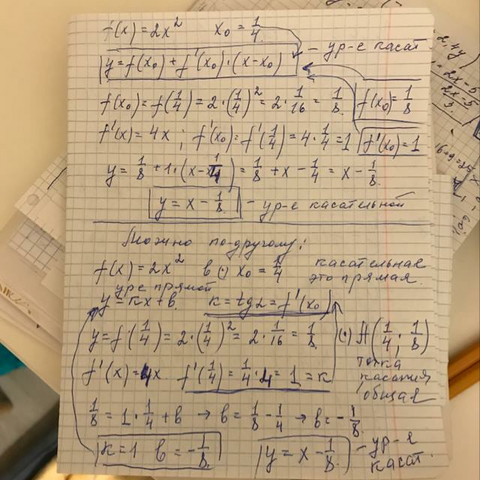 f(x) = 2x² x₀ = 1/4
y = f(x₀) + f'(x₀)·(x-x₀) - ур-е касат
f(x₀) = f(1/4) = 2·(1/4)² = 2·1/16 = 1/8 f(x₀) = 1/8
f'(x) = 4x ; f'(x₀) = f'(1/4) = 4·1/4 = 1 f'(x₀) = 1
y = 1/8 + 1·(x - 1/4) = 1/8 + x - 1/4 = x - 1/8
y = x - 1/8 - ур-е касательной
Можно по-другому:
f(x) = 2x² в (·) x₀ = 1/4 касательная
это прямая
ур-е прямой
y = kx + b, k = tg α = f'(x₀)
y = f(1/4) = 2·(1/4)² = 2·1/16 = 1/8 (·) A(1/4; 1/8)
точка
касания
общая
f'(x) = 4x f'(1/4) = 1/4·4 = 1 = k
1/8 = 1·1/4 + b → b = 1/8 - 1/4 → b = -1/8
k = 1 b = -1/8 y = x - 1/8 - ур-е
касат.